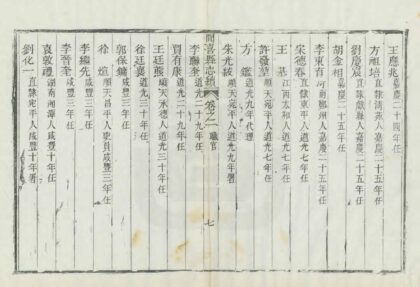 王應兆嘉慶二十四年任
方祖培直隸清苑人嘉慶二十五年任
劉慶宸直隸獻縣人嘉慶二十五年任
胡金相嘉慶二十五年任
李東育河南鄭州人嘉慶二十五年任
宋德春直隸東平人道光七年任
王 江西太和人道光七年任
許發 順天宛平人道光七年任
方 道光九年代理
朱光紱順天宛平人道光九年署
聞喜縣志 卷之二 職官 七
李聯奎道光二十九年任
賈有康道光二十九年任
王廷 順天承德人道光三十年任
徐廷襄道光三十年任
郭保鏞咸豐三年任
徐 順天昌平人吏員咸豐三年任
李繼先咸豐三年任
李晉奎咸豐 年任
袁敦禮湖南湘潭人咸豐十年任
劉化一直隸 平人咸豐十年署